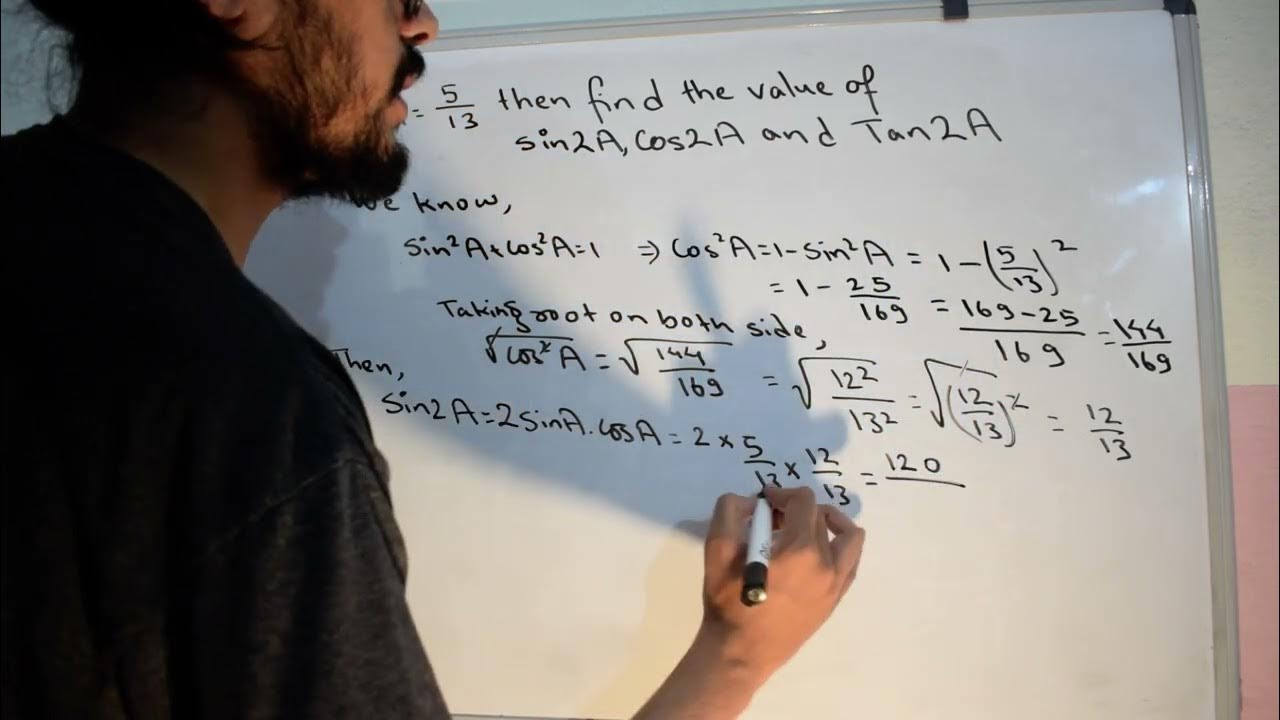 = 5/13 then find the value of
sin2A, cos2A and Tan2A
we know,
sin²A+cos²A=1 ⇒ cos²A=1-sin²A = 1-(5/13)²
= 1 - 25/169 = 169-25/169 = 144/169
Taking root on both side,
√cos²A = √144/169 = √12²/13² = √(12/13)² = 12/13
Then,
sin2A=2sinA.cosA = 2 × 5/13 × 12/13 = 120